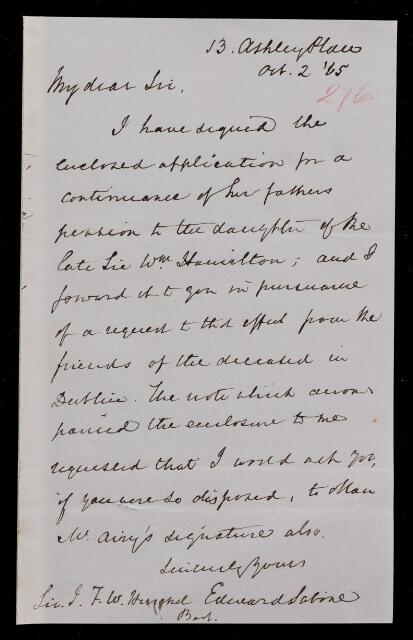 13. Ashley Place
Oct. 2 '65
My dear Sir,
276
I have signed the
enclosed application for a
continuance of her fathers
pension to the daughter of the
late Sir Wm. Hamilton; and I
forward it to you in pursuance
of a request to that effect from the
friends of the deceased in
Dublin. The note which accom-
panied the enclosure to me
requested that I would ask you,
if you were so disposed, to obtain
Mr. Airy's signature also.
Sincerely Yours
Sir. J. F. W. Herschel Edward Sabine
Bart.